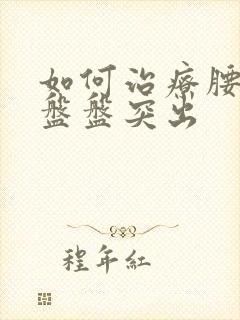 如何治療腰
盤盤突出
程年紅